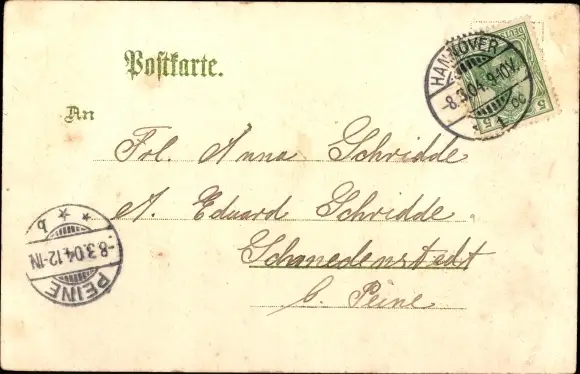 Postkarte.
An
Frl. Anna Schridde
A. Eduard Schridde
Schmedenstedt
b. Peine
HANNOVER
-8.3.04.9-10V.
* 1 cc
5 5
PEINE
-8.3.04.12-1N
* * b